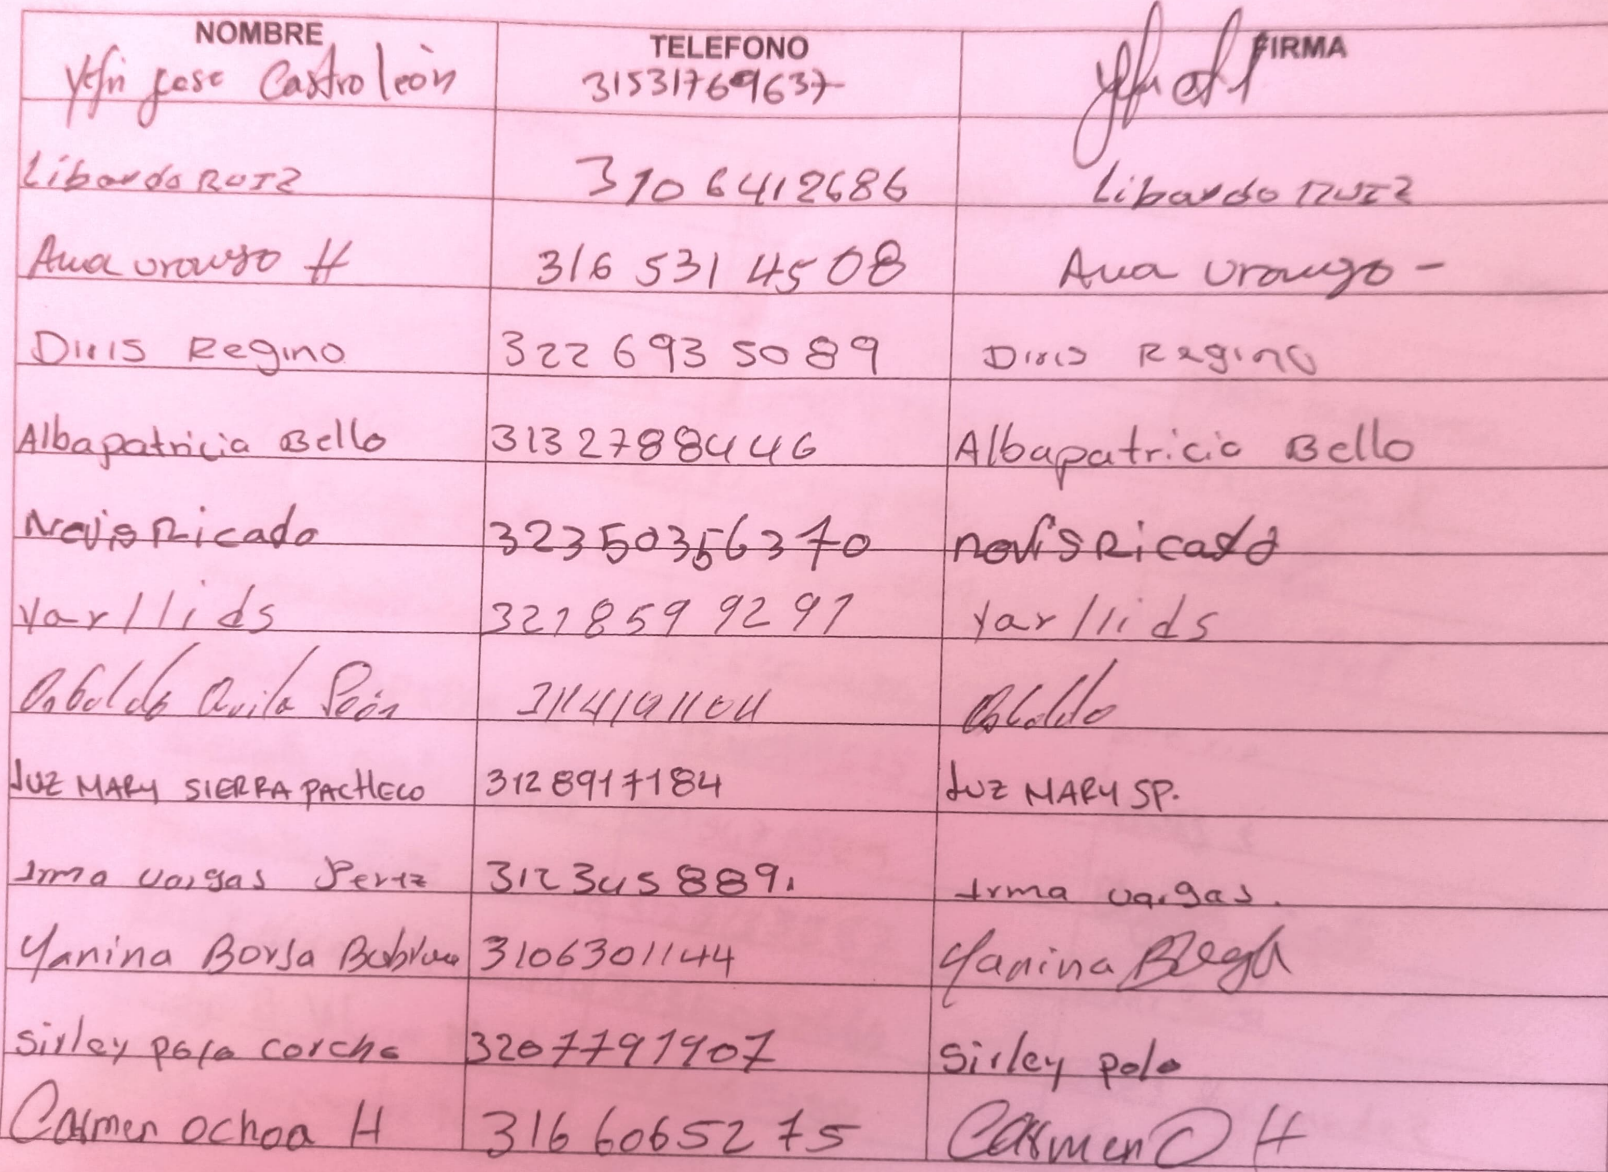 NOMBRE TELEFONO FIRMA
Jose Castro león 31531769637
Libardo RUIZ 3106412686 Libardo RUIZ
Ana urango H 316 531 4508 Ana urango -
Diris Regino 322 693 5089 Diris Regino
Albapatricia Bello 3132788446 Albapatricia Bello
Nevis Ricado 32350356370 novis Ricado
Yarllids 321859 9291 Yarllids
Osbaldo Avila 3114191104 Osbaldo
LUZ MARY SIERRA PACHECO 3128917184 LUZ MARY SP.
Irma vargas Perez 312 345 889. Irma vargas.
Yanina Borja 3106301144 Yanina
Sirley polo corcho 3207791907 Sirley polo
Carmen ochoa H 316 6065275 Carmen O H